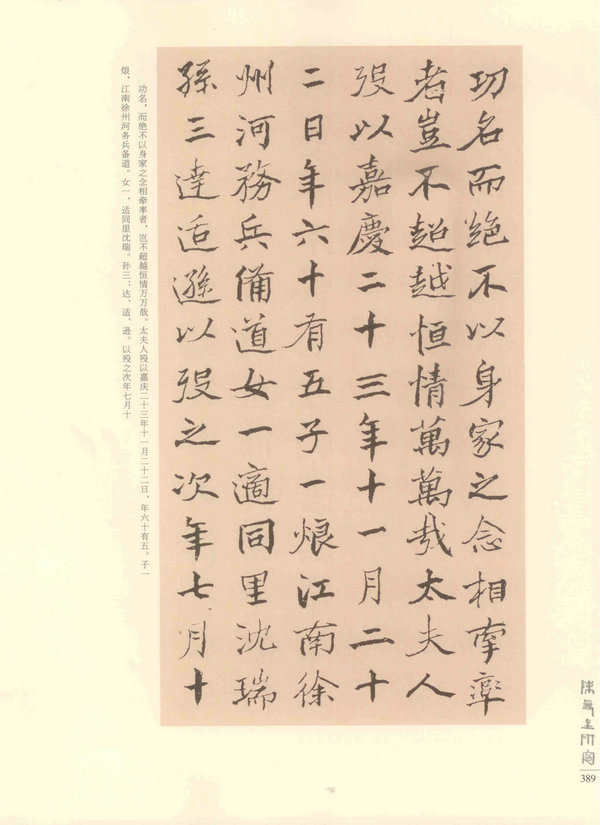 功名而絶不以身家之念相牽率
者豈不超越恒情萬萬哉太夫人
歿以嘉慶二十三年十一月二十
二日年六十有五子一烺江南徐
州河務兵備道女一適同里沈瑞
孫三達适遜以歿之次年七月十
功名，而绝不以身家之念相牵率者，岂不超越恒情万万哉。太夫人殁以嘉庆二十三年十一月二十二日，年六十有五。子一
烺，江南徐州河务兵备道。女一，适同里沈瑞。孙三：达、适、逊。以殁之次年七月十
389